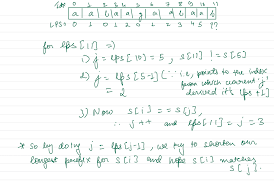 0 1 2 3 4 5 6 7 8 9 10 11
LPS: 0 1 0 1 2 0 1 2 3 4 5 ??
for lps[11] =>
1) j = lps[10] = 5, s[11] != s[5]
2) j = lps[5-1] (∵ i.e., points to the index
from which current 'j'
= 2 derived it's lps+1)
3) Now s[i] == s[j],
∴ j++ and lps[11] = j = 3
* So by doing j = lps[j-1], we try to shorten our
longest prefix for s[i] and hope s[i] matches
s[j].